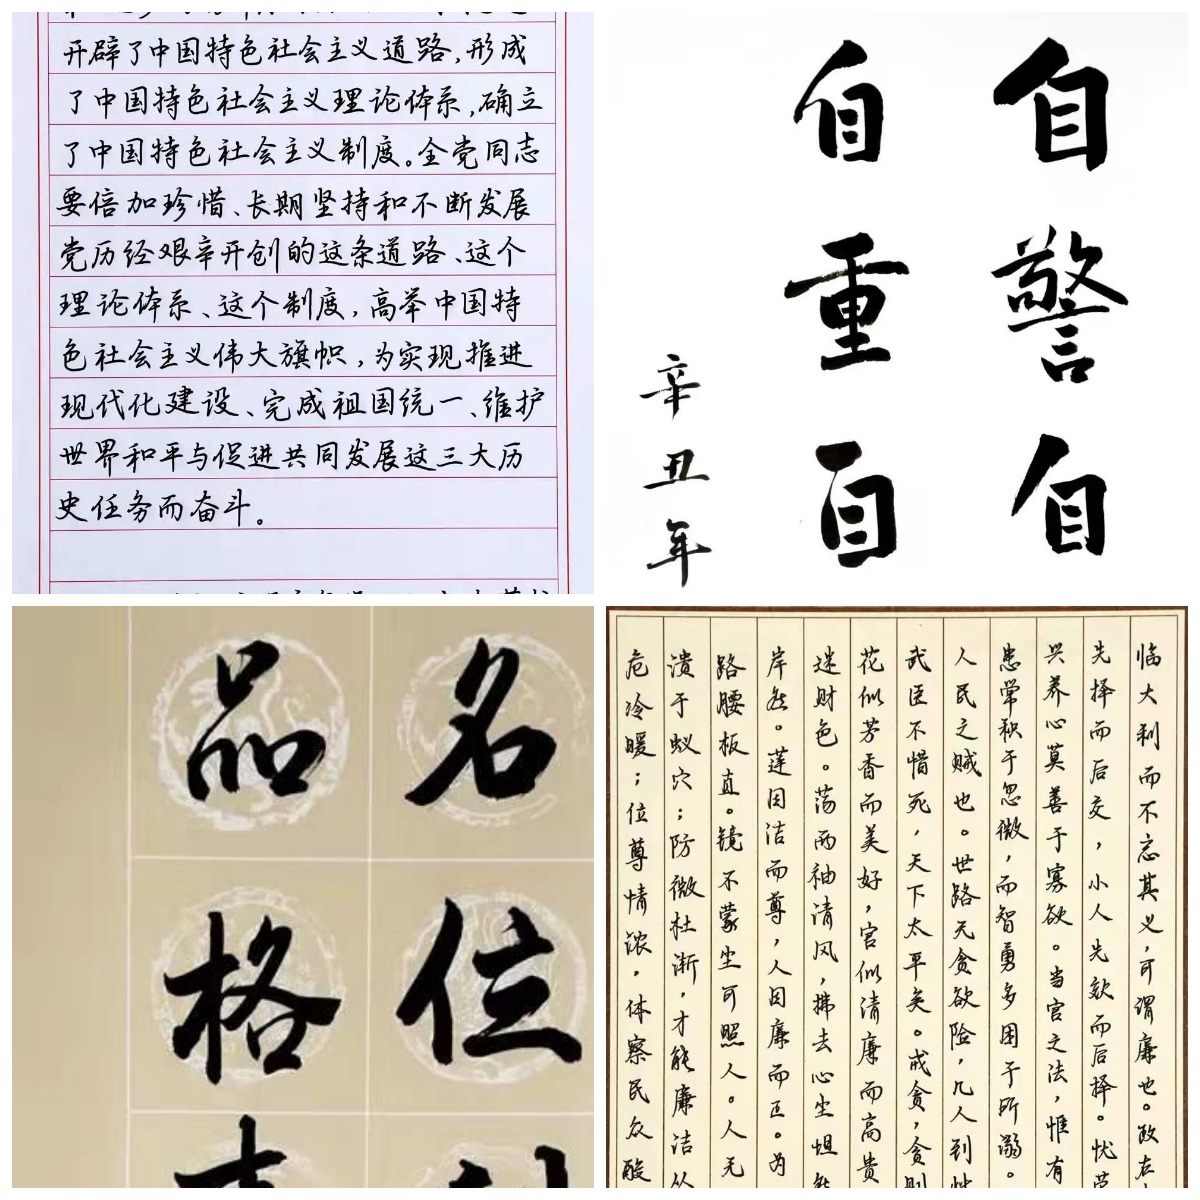 开辟了中国特色社会主义道路,形成
了中国特色社会主义理论体系,确立
了中国特色社会主义制度。全党同志
要倍加珍惜、长期坚持和不断发展
党历经艰辛开创的这条道路、这个
理论体系、这个制度,高举中国特
色社会主义伟大旗帜,为实现推进
现代化建设、完成祖国统一、维护
世界和平与促进共同发展这三大历
史任务而奋斗。
自警自
自重自
辛丑年
名位
品格
临大利而不忘其义,可谓廉也。政在
先择而后交,小人先而后择。忧劳
兴养心莫善于寡欲。当官之法,惟有
患常积于忽微,而智勇多困于所溺。
人民之贼也。世路无贪欲险,几人到
武臣不惜死,天下太平矣。戒贪,贪则
花似芳香而美好,官似清廉而高贵
迷财色。荡两袖清风,拂去心尘坦
岸然。莲因洁而尊,人因廉而正。为
路腰板直。镜不蒙尘可照人。人无
溃于蚁穴;防微杜渐,才能廉洁从
危冷暖;位尊情浓,体察民众酸